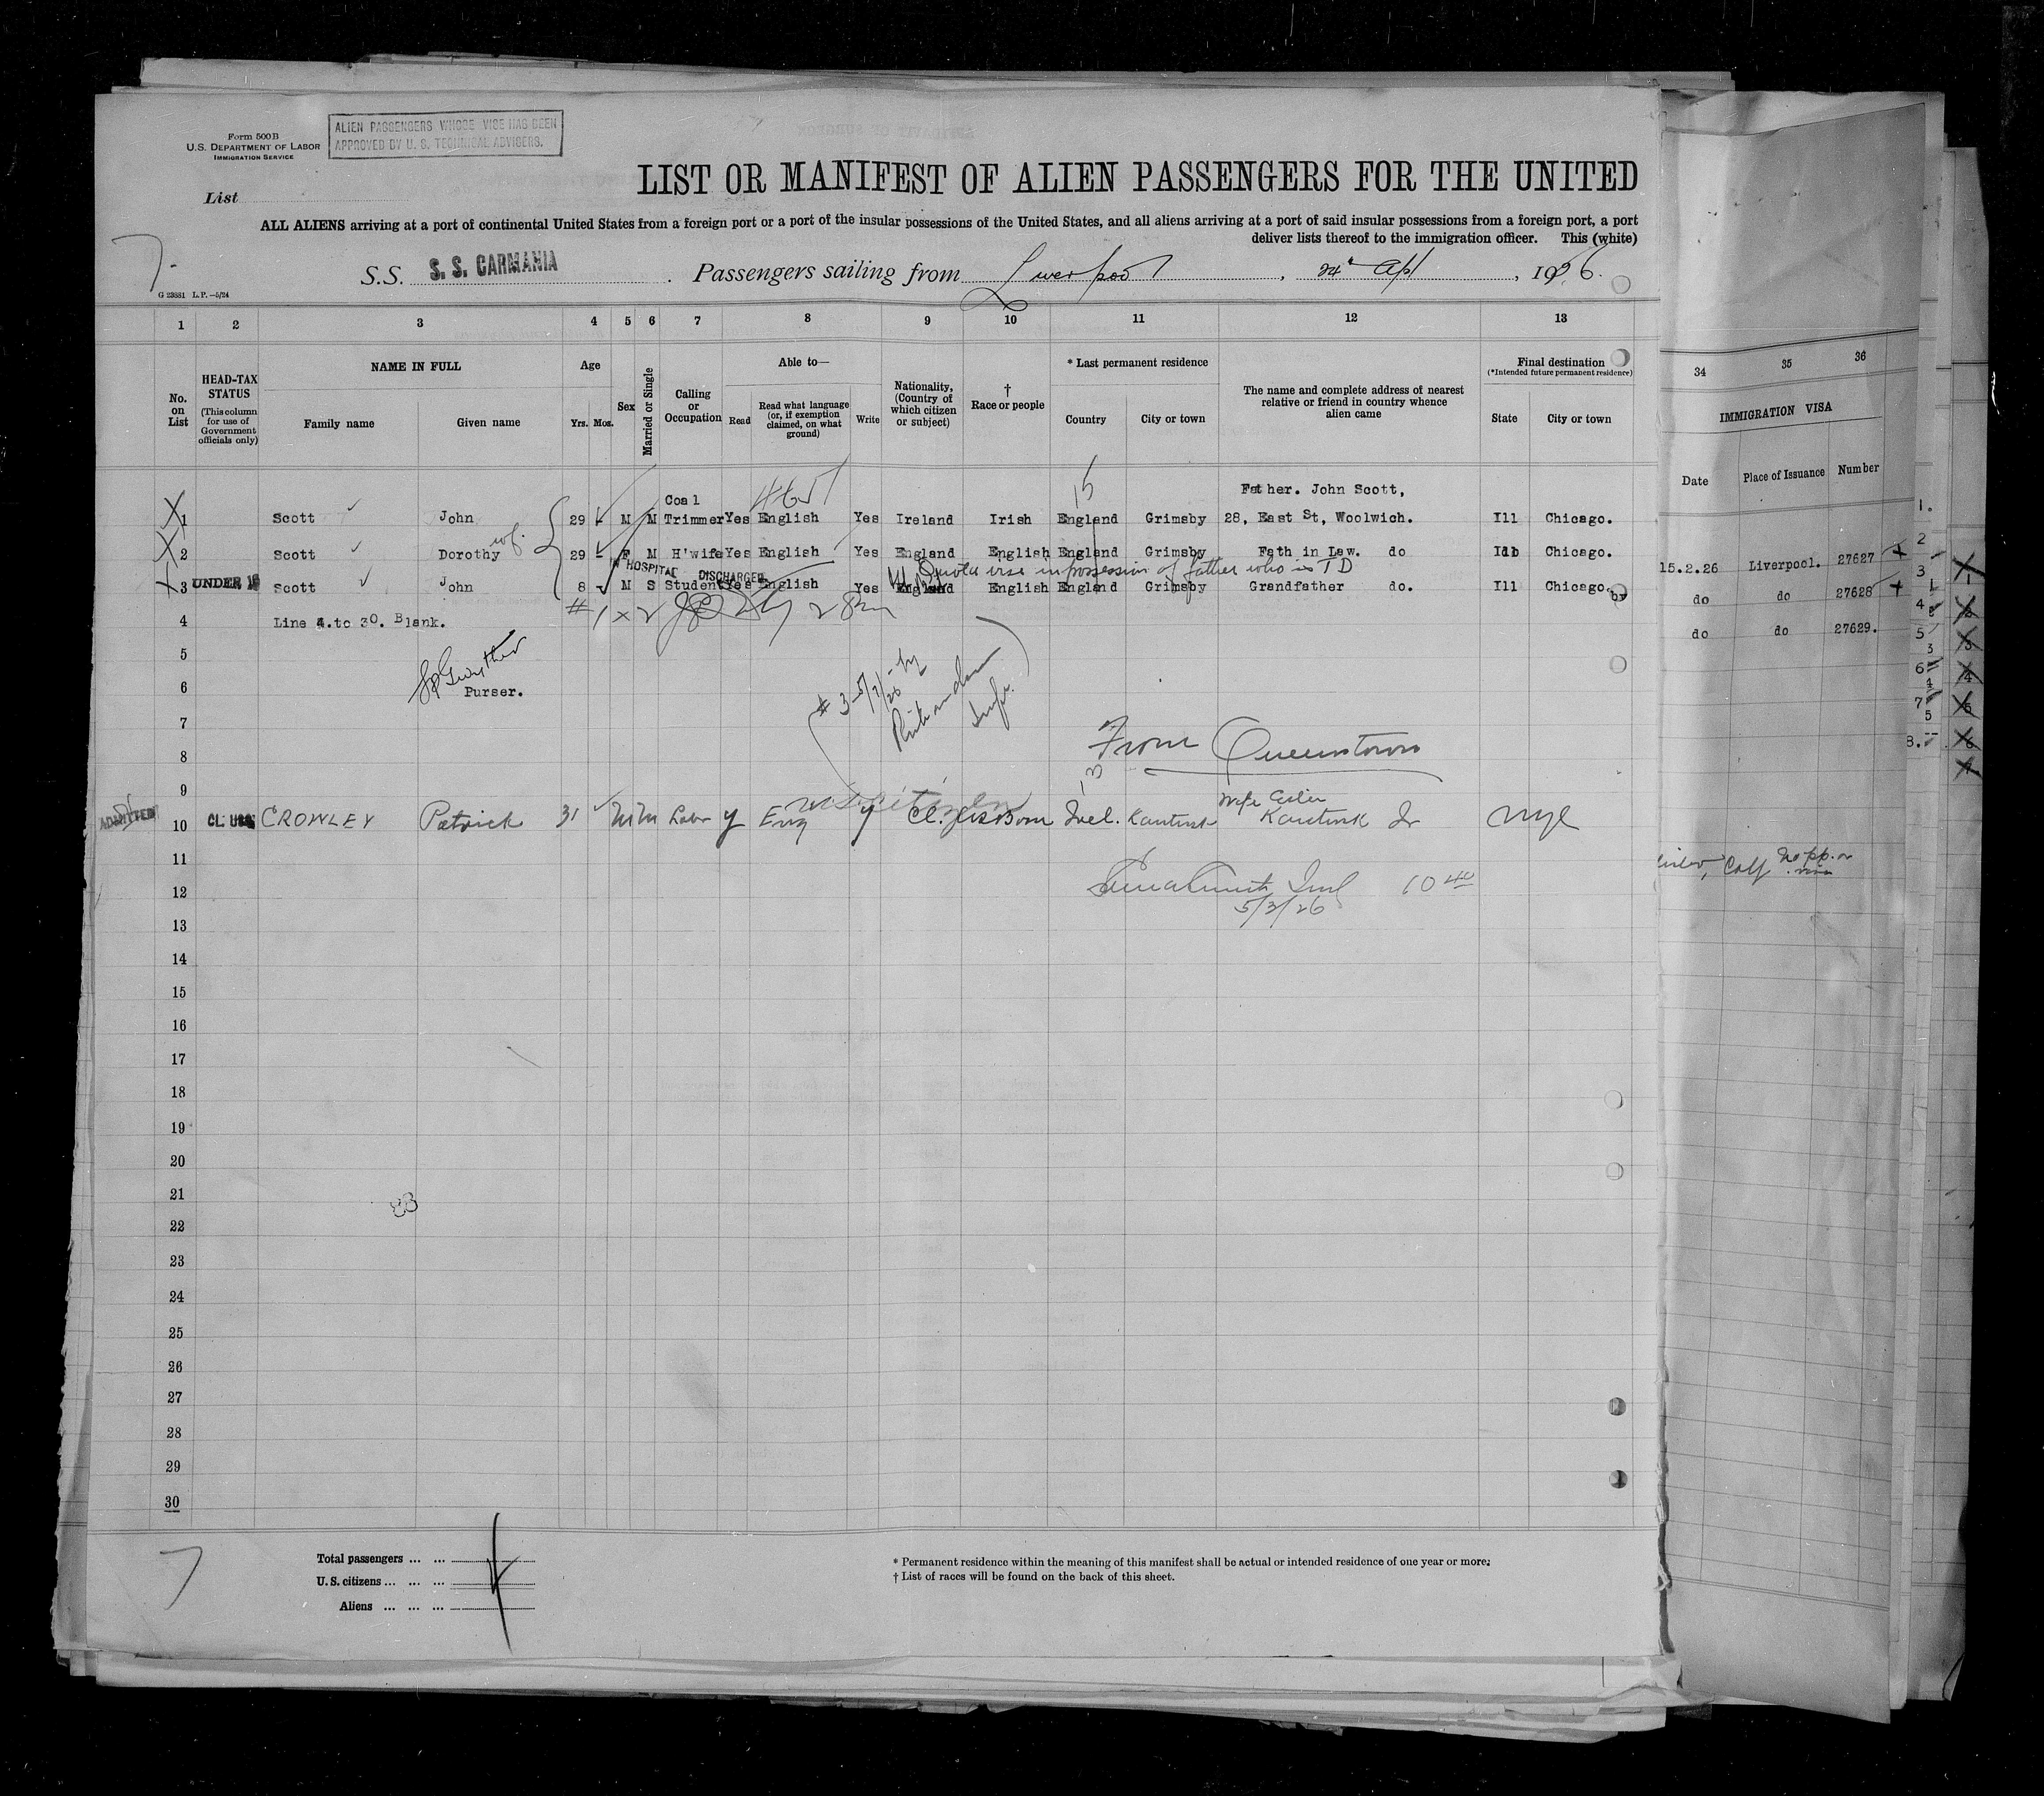 Form 500B
U.S. DEPARTMENT OF LABOR
IMMIGRATION SERVICE
ALIEN PASSENGERS WHOSE VISE HAS BEEN
APPROVED BY U. S. TECHNICAL ADVISERS.
List
LIST OR MANIFEST OF ALIEN PASSENGERS FOR THE UNITED
ALL ALIENS arriving at a port of continental United States from a foreign port or a port of the insular possessions of the United States, and all aliens arriving at a port of said insular possessions from a foreign port, a port
deliver lists thereof to the immigration officer. This (white)
7.
S.S. S. S. CARMANIA . Passengers sailing from Liverpool , 24th Apl , 1926.
G 23881 L.P.—5/24
1 2 3 4 5 6 7 8 9 10 11 12 13
34 35 36
No. on List
HEAD-TAX STATUS
(This column for use of Government officials only)
NAME IN FULL
Family name Given name
Age
Yrs. Mos.
Sex
Married or Single
Calling or Occupation
Able to—
Read
Read what language (or, if exemption claimed, on what ground)
Write
Nationality, (Country of which citizen or subject)
† Race or people
* Last permanent residence
Country City or town
The name and complete address of nearest relative or friend in country whence alien came
Final destination
(*Intended future permanent residence)
State City or town
IMMIGRATION VISA
Date Place of Issuance Number
15
Coal Father. John Scott,
X 1 Scott John 29 M M Trimmer Yes English Yes Ireland Irish England Grimsby 28, East St, Woolwich. Ill Chicago.
X 2 Scott Dorothy wf. 29 F M H'wife Yes English Yes England English England Grimsby Fath in Law. do Ill Chicago.
IN HOSPITAL DISCHARGED
Quota visa in possession of father who is TD
X 3 UNDER 16 Scott John 8 M S Student Yes English Yes England English England Grimsby Grandfather do. Ill Chicago.
15.2.26 Liverpool. 27627
do do 27628
do do 27629.
4 Line 4.to 30. Blank.
#1 x 2
5
6
Purser.
# 3 - 5/7/26 - by
7
From Queenstown
8
9
13
Wife
ADMITTED 10 CL: USC CROWLEY Patrick 31 M M Labr y Eng y Irel. NYC
11
12
10 40
5/3/26
13
14
15
16
17
18
19
20
21
22
23
24
25
26
27
28
29
30
7
Total passengers ... ...
U. S. citizens ... ... ...
Aliens ... ... ...
4
* Permanent residence within the meaning of this manifest shall be actual or intended residence of one year or more.
† List of races will be found on the back of this sheet.